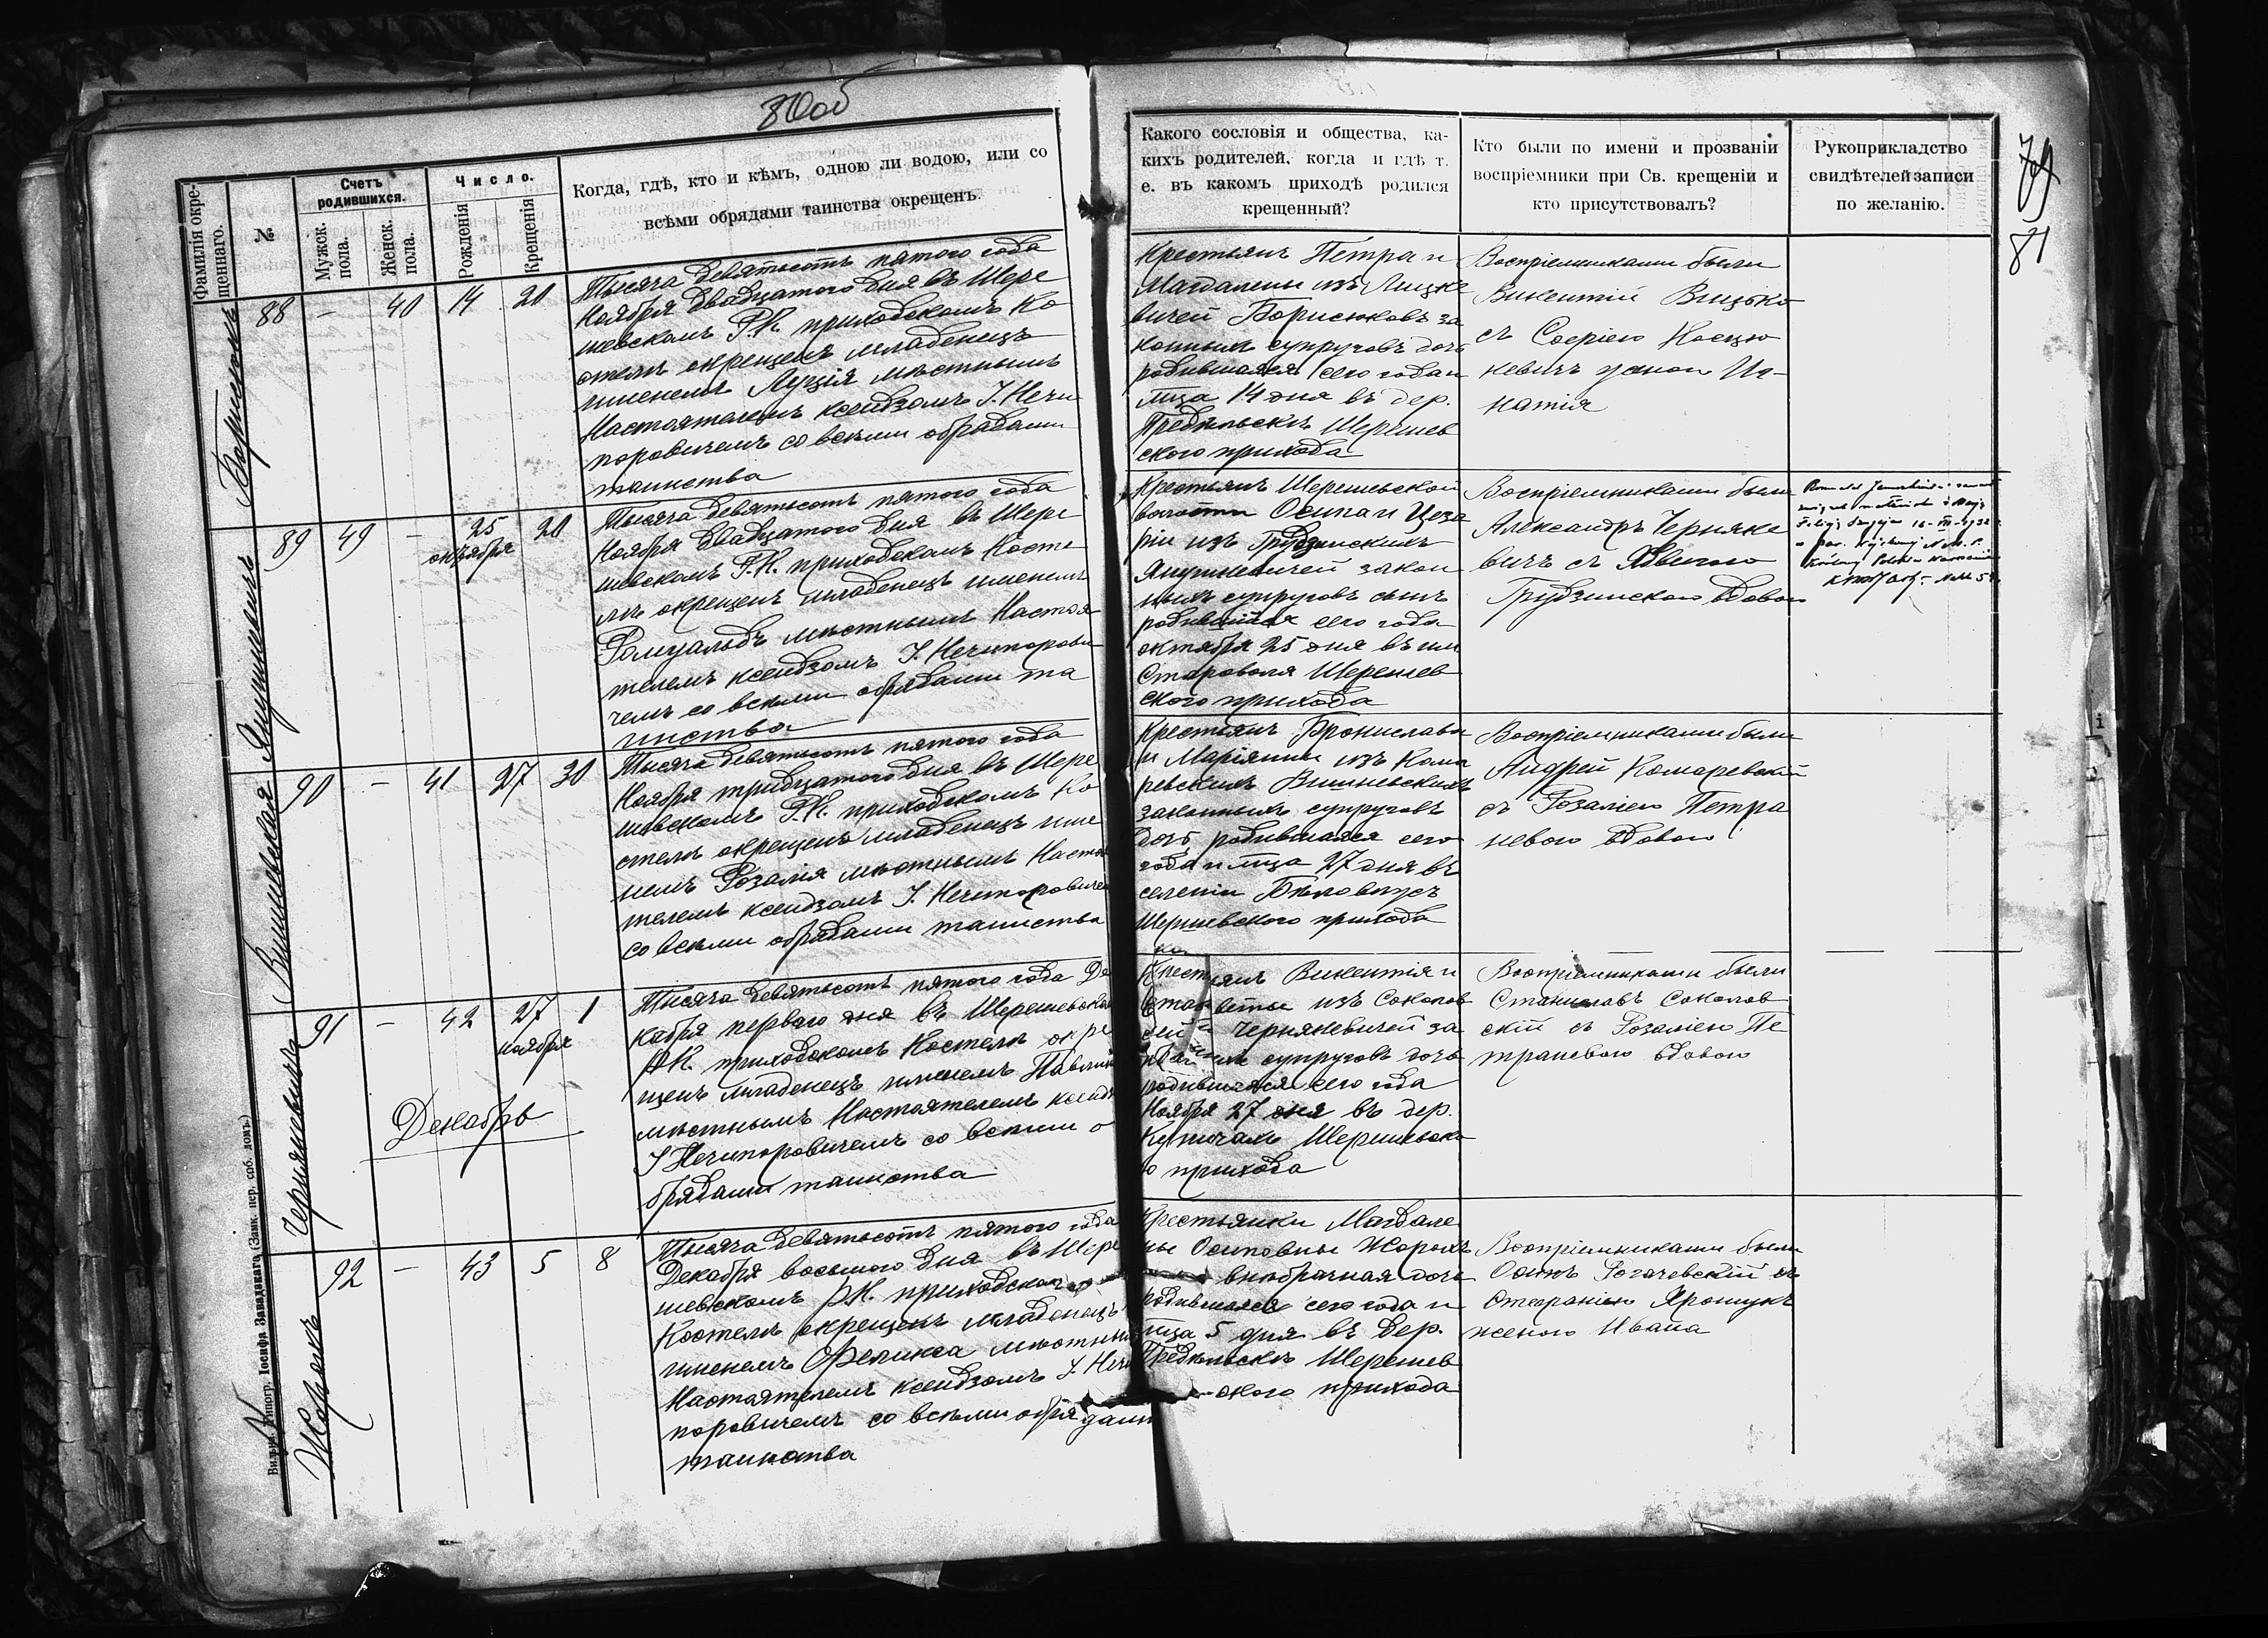 80об
Фамилія окре-
щеннаго.
№
Счетъ
родившихся.
Мужск.
пола.
Женск.
пола.
Число.
Рожденія
Крещенія
Когда, гдѣ, кто и кѣмъ, одною ли водою, или со
всѣми обрядами таинства окрещенъ.
Борисюкъ
88 — 40 14 20
Тысяча девятьсотъ пятого года
Ноября двадцатого дня въ Шере
шевскомъ Р.К. приходскомъ Ко
стелѣ окрещенъ младенецъ
именемъ Луція мѣстнымъ
Настоятелемъ ксендзомъ І. Нечи
поровичемъ со всѣми обрядами
таинства
Янушкевичъ
89 49 — 25 20
октября
Тысяча девятьсотъ пятого года
Ноября двадцатого дня въ Шере
шевскомъ Р.К. приходскомъ Косте
лѣ окрещенъ младенецъ именемъ
Ромуальдъ мѣстнымъ Настоя
телемъ ксендзомъ І. Нечипорови
чемъ со всѣми обрядами та
инства
Вишневская
90 — 41 27 30
Тысяча девятьсотъ пятого года
Ноября тридцатого дня въ Шере
шевскомъ Р.К. приходскомъ Ко
стелѣ окрещенъ младенецъ име
немъ Розалія мѣстнымъ Настоя
телемъ ксендзомъ І. Нечипоровичемъ
со всѣми обрядами таинства
Чернякевичъ
91 — 42 27 1
ноября
Декабрь
Тысяча девятьсотъ пятого года Де
кабря перваго дня въ Шерешевскомъ
Р.К. приходскомъ Костелѣ окре
щенъ младенецъ именемъ Павлина
мѣстнымъ Настоятелемъ ксендз
І Нечипоровичемъ со всѣми о
брядами таинства
Жорокъ
92 — 43 5 8
Тысяча девятьсотъ пятого года
Декабря восьмого дня въ Шере
шевскомъ Р.К. приходском
Костелѣ окрещенъ младенецъ
именемъ Феликса мѣстны
Настоятелемъ ксендзомъ І. Нечи
поровичемъ со всѣми обрядами
таинства
Вильна. Типогр. Іосифа Завадзкаго (Замк. пер. соб. домъ.)
Какого сословія и общества, ка-
кихъ родителей, когда и гдѣ т.
е. въ какомъ приходѣ родился
крещенный?
Кто были по имени и прозваніи
воспріемники при Св. крещеніи и
кто присутствовалъ?
Рукоприкладство
свидѣтелей записи
по желанію.
79
81
Крестьянъ Петра и
Магдалены изъ Лицке
вичей Борисюковъ за
конныхъ супруговъ дочь
родившаяся сего года и
мца 14 дня въ дер.
Предѣльскѣ Шерешев
ского прихода
Воспріемниками были
Викентій Вицько
съ Софіею Косцю
кевичъ женою Иг-
натія
Крестьянъ Шерешевской
волости Осипа и Цеза
ріи изъ Грудзинскихъ
Янушкевичей закон
ныхъ супруговъ сынъ
родившійся сего года
октября 25 дня въ им
Староволя Шерешев
ского прихода
Воспріемниками были
Александръ Черняке
вичъ съ
Грудзинскою вдовою
Крестьянъ Бронислава
и Маріянны изъ Кома
ревскихъ Вишневскихъ
законныхъ супруговъ
дочь родившаяся сего
года и мца 27 дня въ
селеніи
Шерешевского прихода
Воспріемниками были
Андрей Комаревскій
съ Розаліею Петра
невою вдовою
Крестьянъ Викентія и
изъ Соколов
Чернякевичей за
супруговъ дочь
родившаяся сего года
Ноября 27 дня въ дер.
Купичахъ Шерешевско
о прихода
Воспріемниками были
Станиславъ Соколов
скій съ Розаліею Пе
траневою вдовою
Крестьянки Магдале
ны Осиповны Жорокъ
внѣбрачная дочь
родившаяся сего года и
мца 5 дня въ дер.
Предѣльскѣ Шерешев
ского прихода
Воспріемниками были
Осипъ Рогачевскій съ
Стефаніею Ярошукъ
женою Ивана